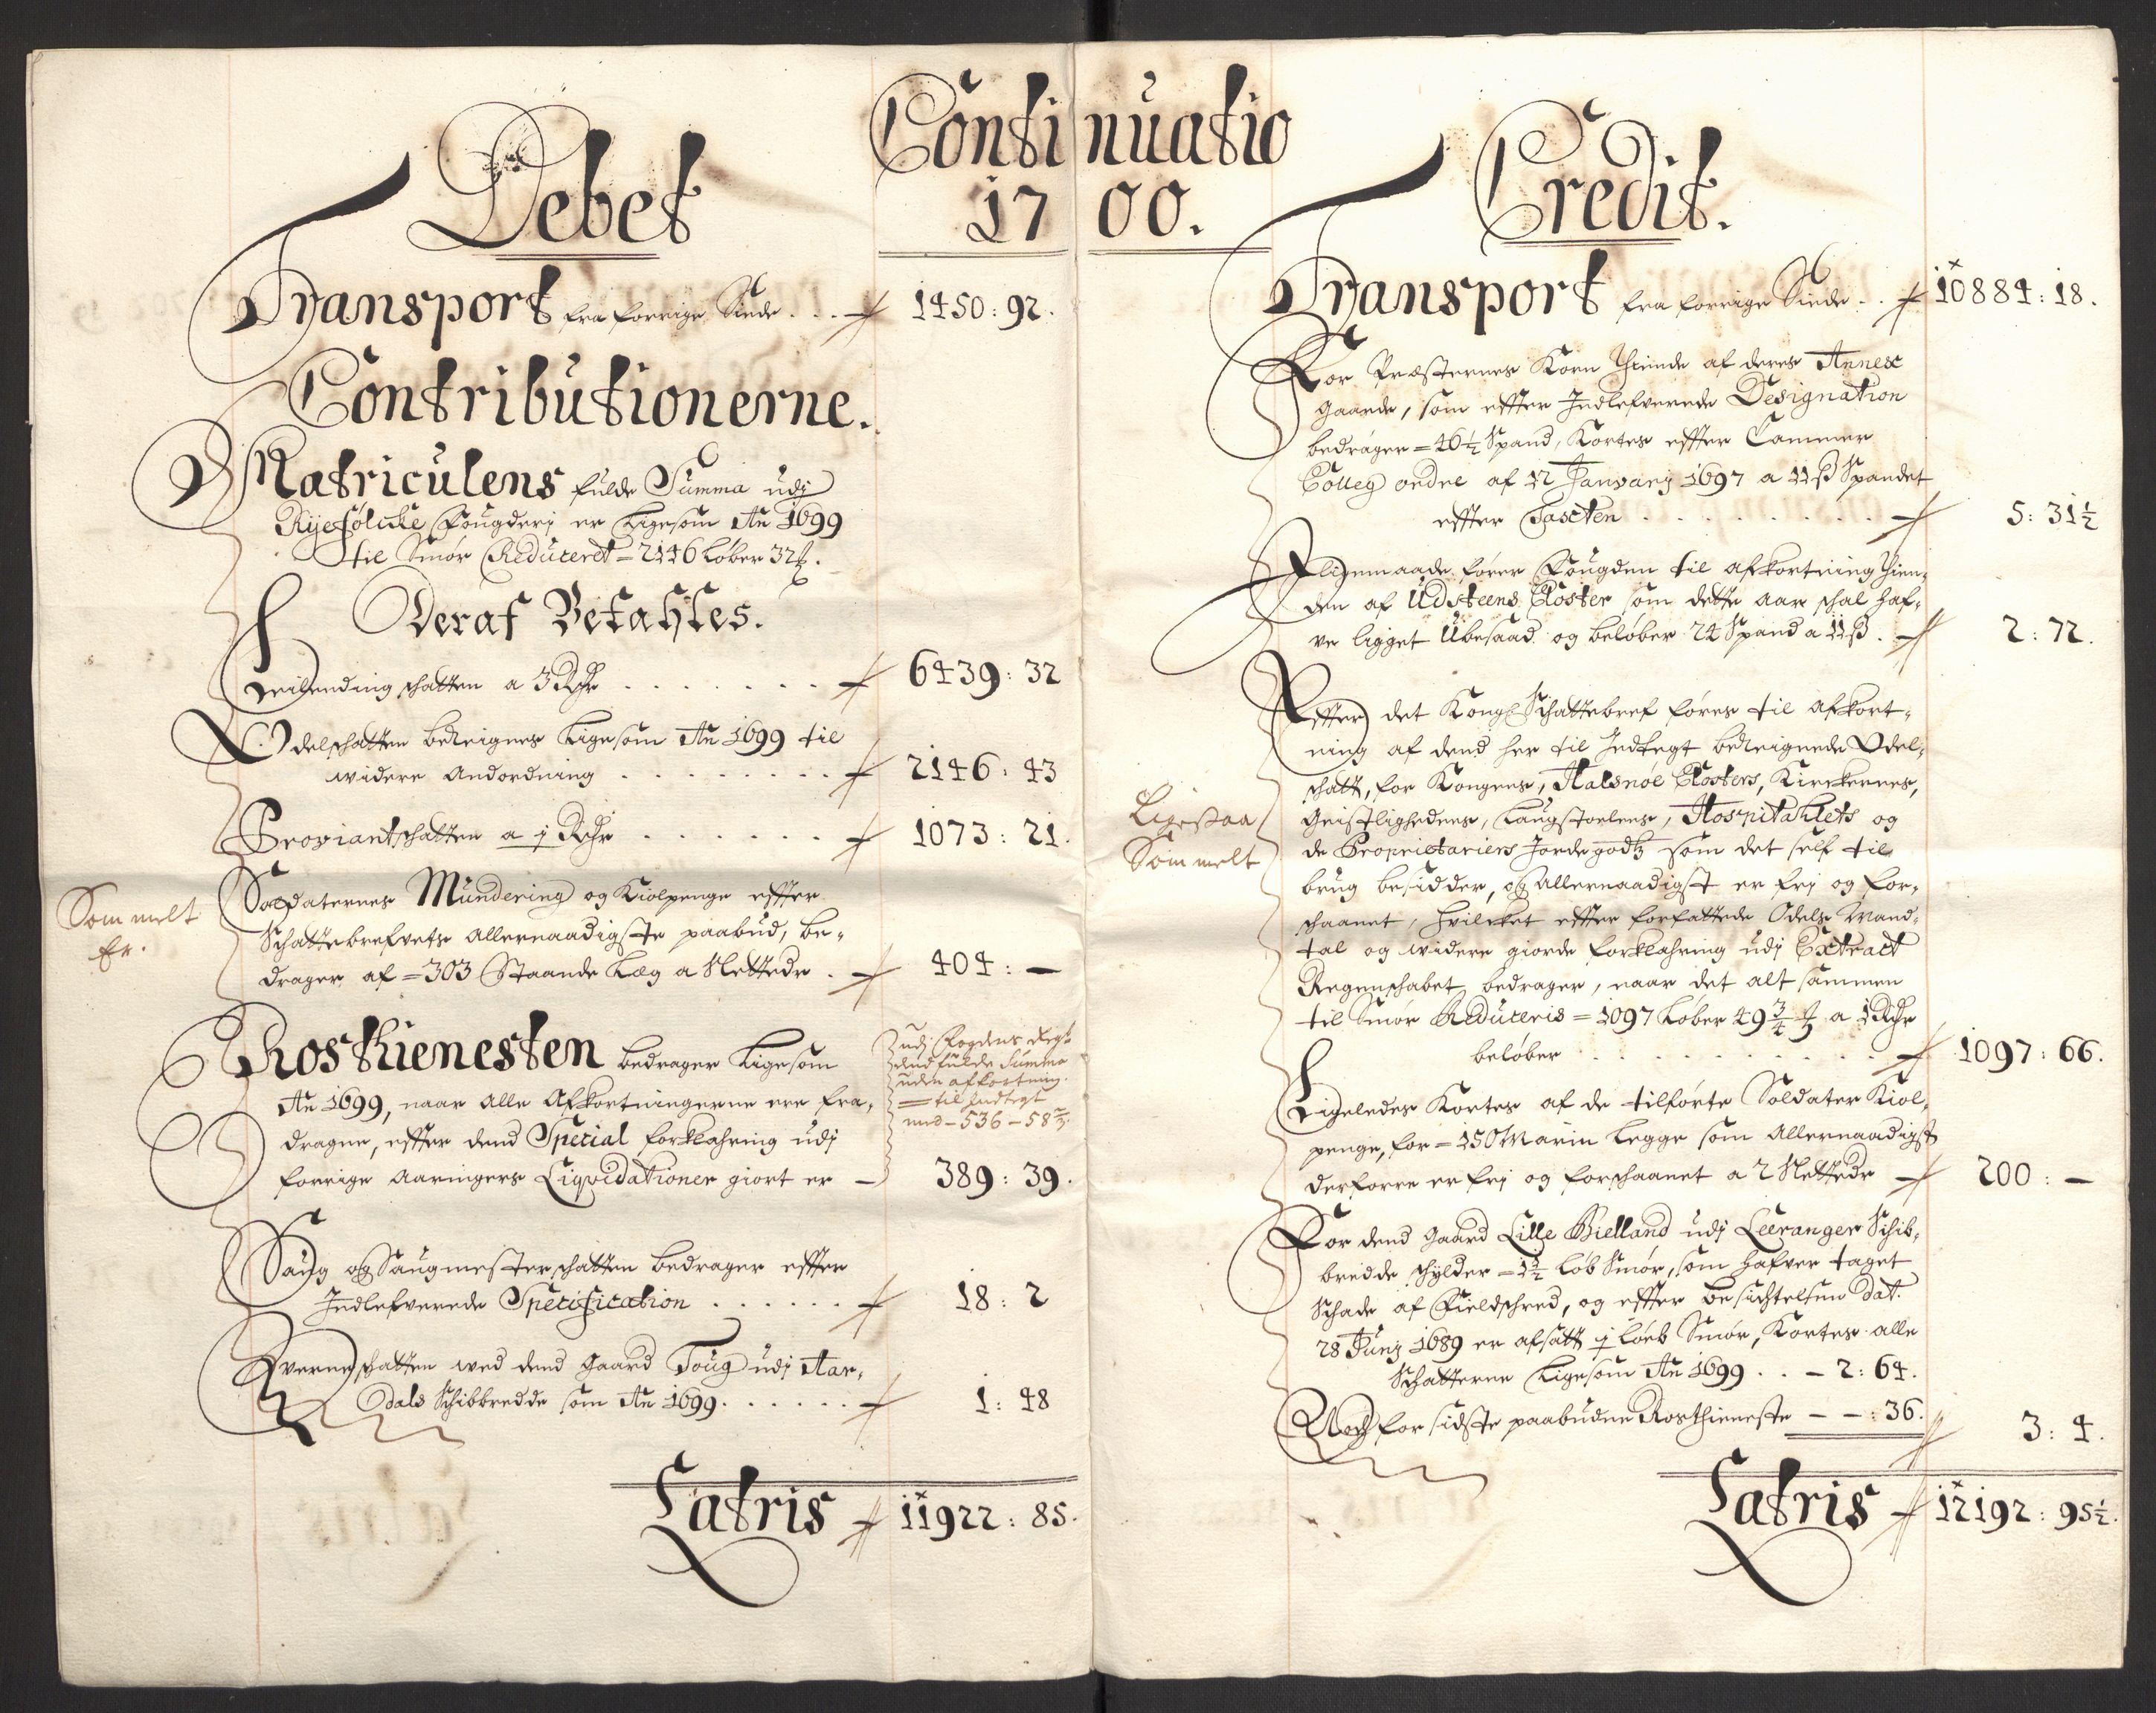 Continuatio
1700.
Debet
Transport fra forrige Siide . . . 1450: 92.
Contributionerne.
Matriculens fulde Summa udj
Ryefølcke Fougderj er Ligesom Ao 1699
til Smør Reduceret = 2146 Løber 32 ℔.
Deraf Betahles.
Leilending schatten a 3 Rdr . . . . . . . 6439: 32
Odelschatten beReignes Ligesom Ao 1699 til
widere Andordning . . . . . . . . 2146: 43
Proviantschatten a ½ Rdr . . . . . . . 1073: 21.
Som melt
er.
Soldaternes Mundering og Kiolpenge effter
Schattebrefvets allernaadigste paabud, be-
drager af = 303 Staande Læg a Slettedr . 404: —
Rostienesten bedrager Ligesom
Ao 1699, naar alle Afkortningerne ere fra-
dragne, effter dend Special forklahring udj
forrige Aaringers Liqvidationer giort er — 389: 39.
udj Fogdens Regsk
dend fulde Summa
uden afkortning.
— til Indtegt
med — 536 — 58⅔.
Saug og Saugmesterschatten bedrager effter
Indlefverede Specification . . . . . . 18: 2
Qverneschatten wed dend gaard Toug udj Aar-
dals Schibbredde som Ao 1699 . . . . . . 1: 48
Latris 11922: 85.
Credit.
Transport fra forrige Siide . . 10884: 18.
For Præsternes Korn Thiende af deres Annex
gaarde, som effter Indlefverede Designation
bedrager = 46½ Spand, Kortes effter Cammer
Colleg ordre af 12 Januarij 1697 a 11 ß Spandet
effter Taxten . . . . . . . . . 5: 31½
I ligemaade fører Fougden til afkortning Thien-
den af Udsteens Closter som dette aar schal haf-
ve ligget Ubesaad og beløber 24 Spand a 11 ß . 2: 72.
Effter det Kongl Schattebref føres til afkort-
ning af dend her til Indtegt beReignede Odel-
schatt, for Kongens, Halsnøe Closters, Kirckernes,
Geistlighedens, Laugstoelens, Hospitahlets og
de Proprietariers Jorde godtz som det self til
brug besidder, og Allernaadigst er frj og for-
schaanet, hvilcket effter forfattede Odels Mand-
tal og widere giorde forklahring udj Extract
Regenschabet bedrager, naar det alt sammen
til Smør Reduceris = 1097 Løber 49¾ ℔ a 1 Rdr
beløber . . . . . . . . . . . 1097: 66.
Ligesaa
Som melt
Ligeledes Kortes af de tilførte Soldater Kiol-
penge, for = 150 Marin Legge som Allernaadigst
derforre er frj og forschaanet a 2 Slettedr 200: —
For dend gaard Lille Bielland udj Leeranger Schib-
bredde schylder = 1½ Løb Smør, som hafver taget
Schade af Fieldschred, og effter besichtelsen dat.
28 Junj 1689 er afsatt ½ Løeb Smør, Kortes alle
Schatterne Ligesom Ao 1699 . . — 2: 64.
Nock for sidste paabudne Rosthieneste — — : 36. 3: 4.
Latris 12192: 95½.